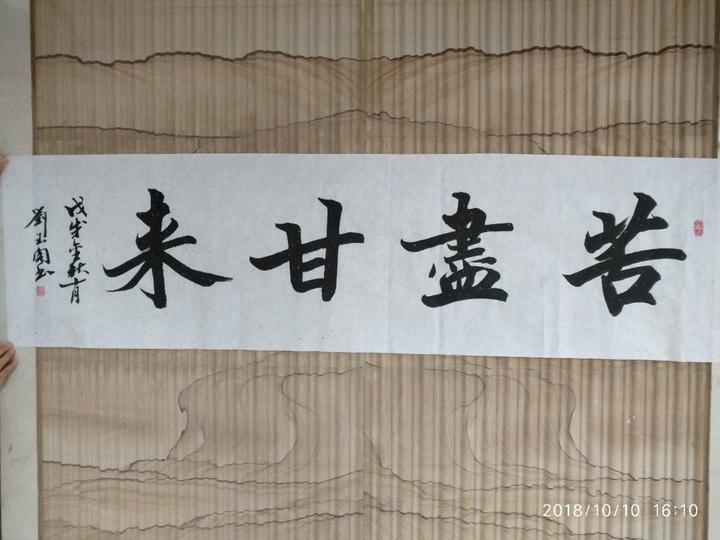 苦盡甘来
戊戌金秋十月
劉玉國书
2018/10/10 16:10